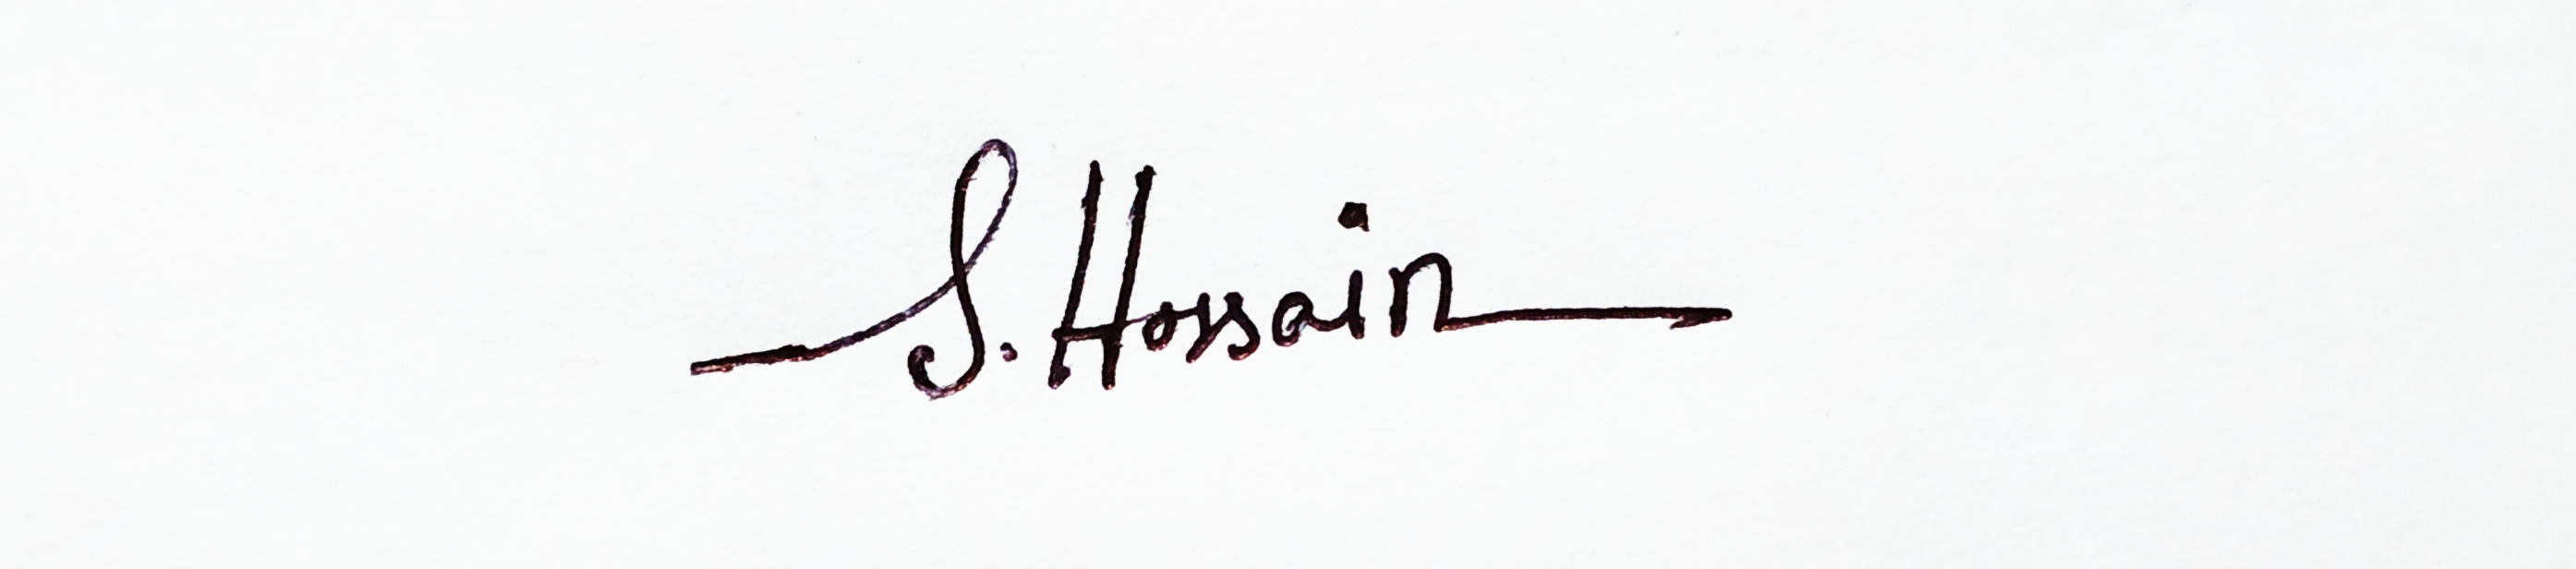 S. Hossain